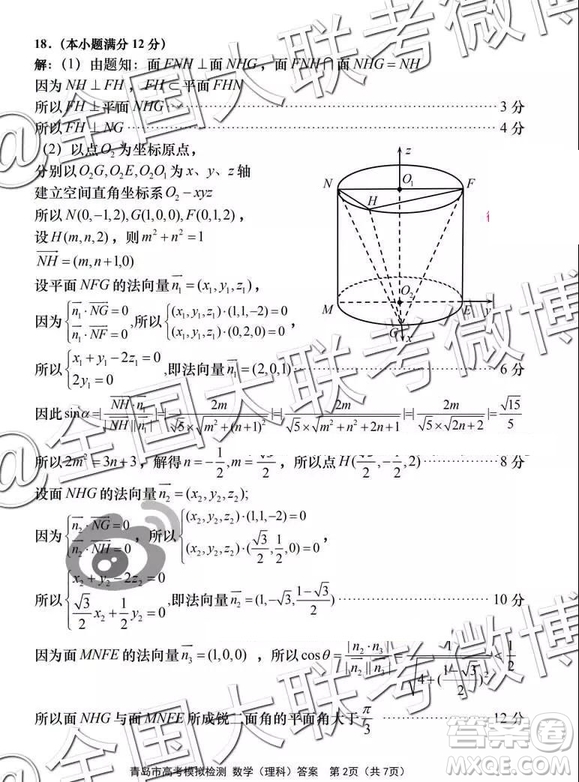 18.（本小题满分 12 分）
解：（1）由题知：面 FNH⊥面 NHG，面 FNH∩面 NHG=NH
因为 NH⊥FH，FH⊂平面 FHN
所以 FH⊥平面 NHG ………… 3 分
所以 FH⊥NG ………… 4 分
（2）以点 O₂ 为坐标原点，
分别以 O₂G, O₂E, O₂O₁ 为 x、y、z 轴
建立空间直角坐标系 O₂-xyz
所以 N(0,-1,2), G(1,0,0), F(0,1,2)，
设 H(m,n,2)，则 m²+n²=1
NH=(m,n+1,0)
z
N O₁ F
H
M O₂ E y
G x
设平面 NFG 的法向量 n₁=(x₁,y₁,z₁)，
因为 {n₁·NG=0, n₁·NF=0, 所以 {(x₁,y₁,z₁)·(1,1,-2)=0, (x₁,y₁,z₁)·(0,2,0)=0，
所以 {x₁+y₁-2z₁=0, 2y₁=0, 即法向量 n₁=(2,0,1) ………… 6 分
因此 sinα=|NH·n₁/|NH||n₁||=|2m/(√5×√(m²+(n+1)²))|=|2m/(√5×√(m²+n²+2n+1))|=|2m/(√5×√(2n+2))|=√15/5
所以 2m²=3n+3，解得 n=-1/2, m=√3/2，所以点 H(√3/2,-1/2,2) ………… 8 分
设面 NHG 的法向量 n₂=(x₂,y₂,z₂);
因为 {n₂·NG=0, n₂·NH=0, 所以 {(x₂,y₂,z₂)·(1,1,-2)=0, (x₂,y₂,z₂)·(√3/2,1/2,0)=0，
所以 {x₂+y₂-2z₂=0, √3/2 x₂+1/2 y₂=0, 即法向量 n₂=(1,-√3,(1-√3)/2) ………… 10 分
因为面 MNFE 的法向量 n₃=(1,0,0)，所以 cosθ=|n₂·n₃|/|n₂||n₃|=1/√(4+((1-√3)/2)²)<1/2
所以面 NHG 与面 MNFE 所成锐二面角的平面角大于 π/3 ………… 12 分
青岛市高考模拟检测 数学（理科）答案 第 2页（共 7页）
@全国大联考微博
@全国大联考微博